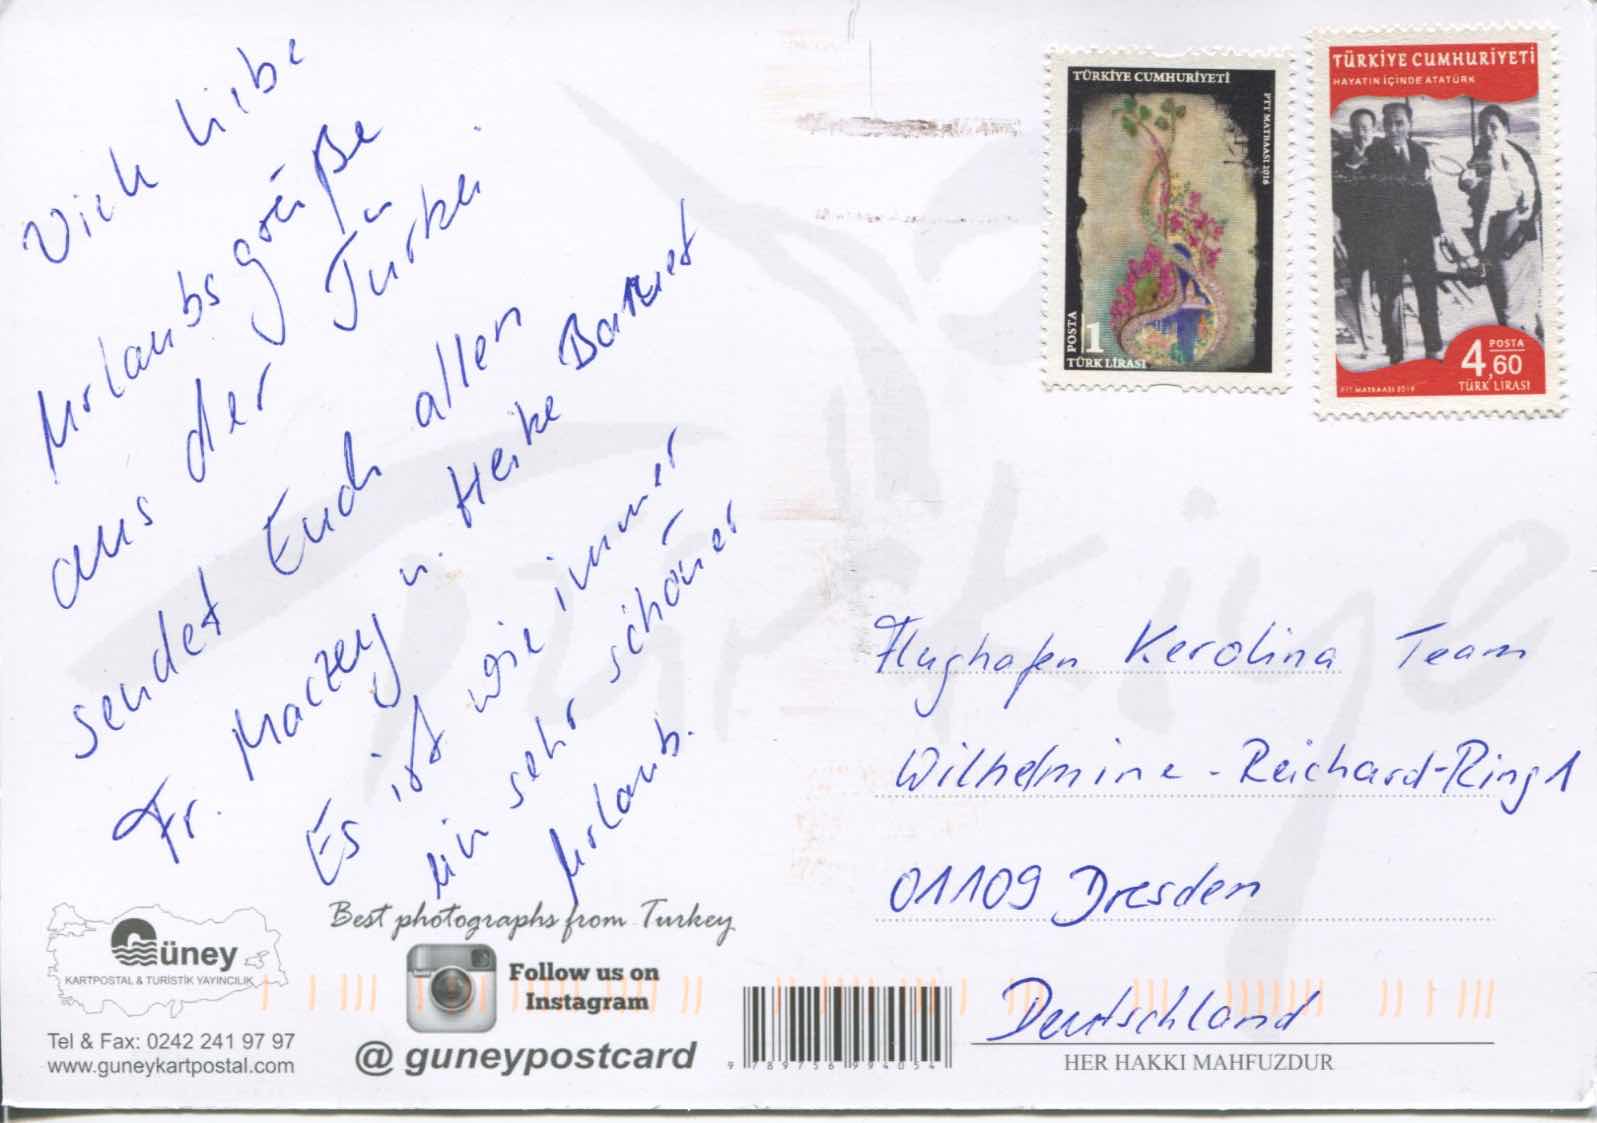 Viele liebe
Urlaubsgrüße
aus der Türkei
sendet Euch allen
Fr. Maczey u. Heike
Es ist wie immer
ein sehr schöner
Urlaub.
TÜRKİYE CUMHURİYETİ
PTT MATBAASI 2016
POSTA
1
TÜRK LİRASI
TÜRKİYE CUMHURİYETİ
HAYATIN İÇİNDE ATATÜRK
4,60
POSTA
TÜRK LİRASI
PTT MATBAASI
Türkiye
Flughafen Kerolina Team
Wilhelmine-Reichard-Ring 1
01109 Dresden
Deutschland
Güney
KARTPOSTAL & TURİSTİK YAYINCILIK
Tel & Fax: 0242 241 97 97
www.guneykartpostal.com
Best photographs from Turkey
Follow us on
Instagram
@ guneypostcard
9 789756 994054
HER HAKKI MAHFUZDUR